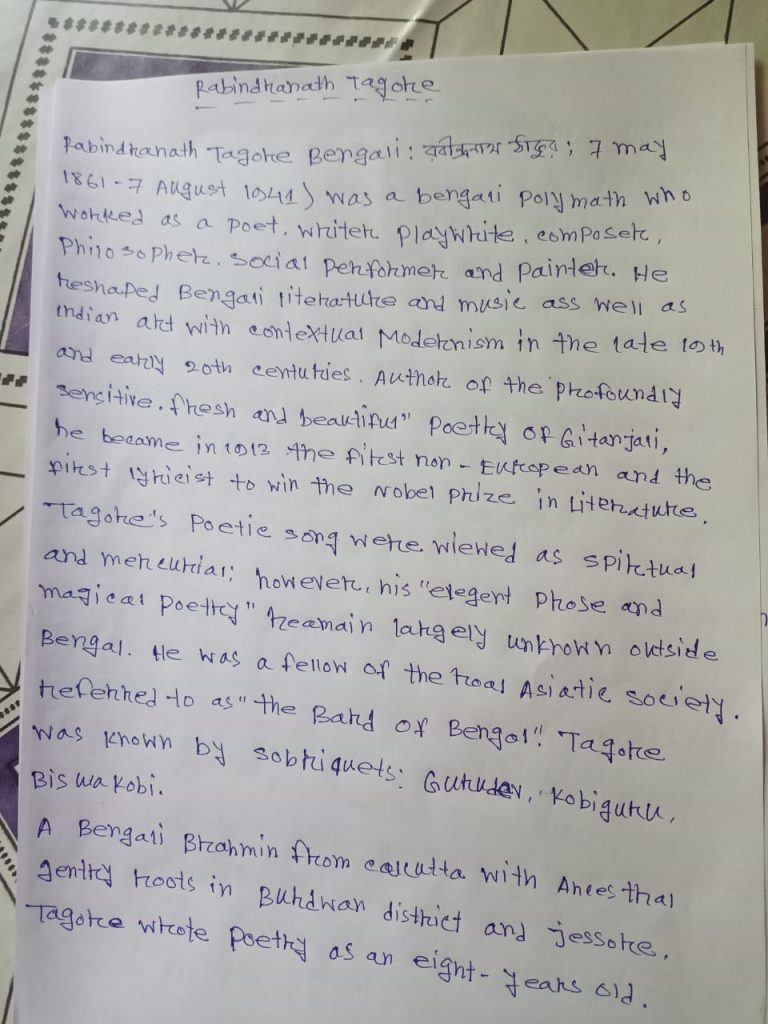 Rabindranath Tagore
Rabindranath Tagore Bengali: রবীন্দ্রনাথ ঠাকুর; 7 may
1861-7 August 1941) was a bengali polymath who
worked as a poet. writer playwrite, composer,
Philosopher. social performer and painter. He
reshaped Bengali literature and music ass well as
indian art with contextual Modernism in the late 19th
and early 20th centuries. Author of the "profoundly
sensitive. fresh and beautiful" poetry of Gitanjali,
he became in 1913 the first non-European and the
first lyricist to win the Nobel prize in Literature.
Tagore's poetic song were wiewed as spirtual
and mercurial; however, his "elegent prose and
magical poetry" reamain largely unkrown outside
Bengal. He was a fellow of the roal Asiatic society.
referred to as "the Bard of Bengol". Tagore
was known by sobriquets: Gurudev, Kobiguru,
Biswakobi.
A Bengali Brahmin from calcutta with Ancesthal
gentry roots in Burdwan district and jessore.
Tagore wrote poetry as an eight-years old.